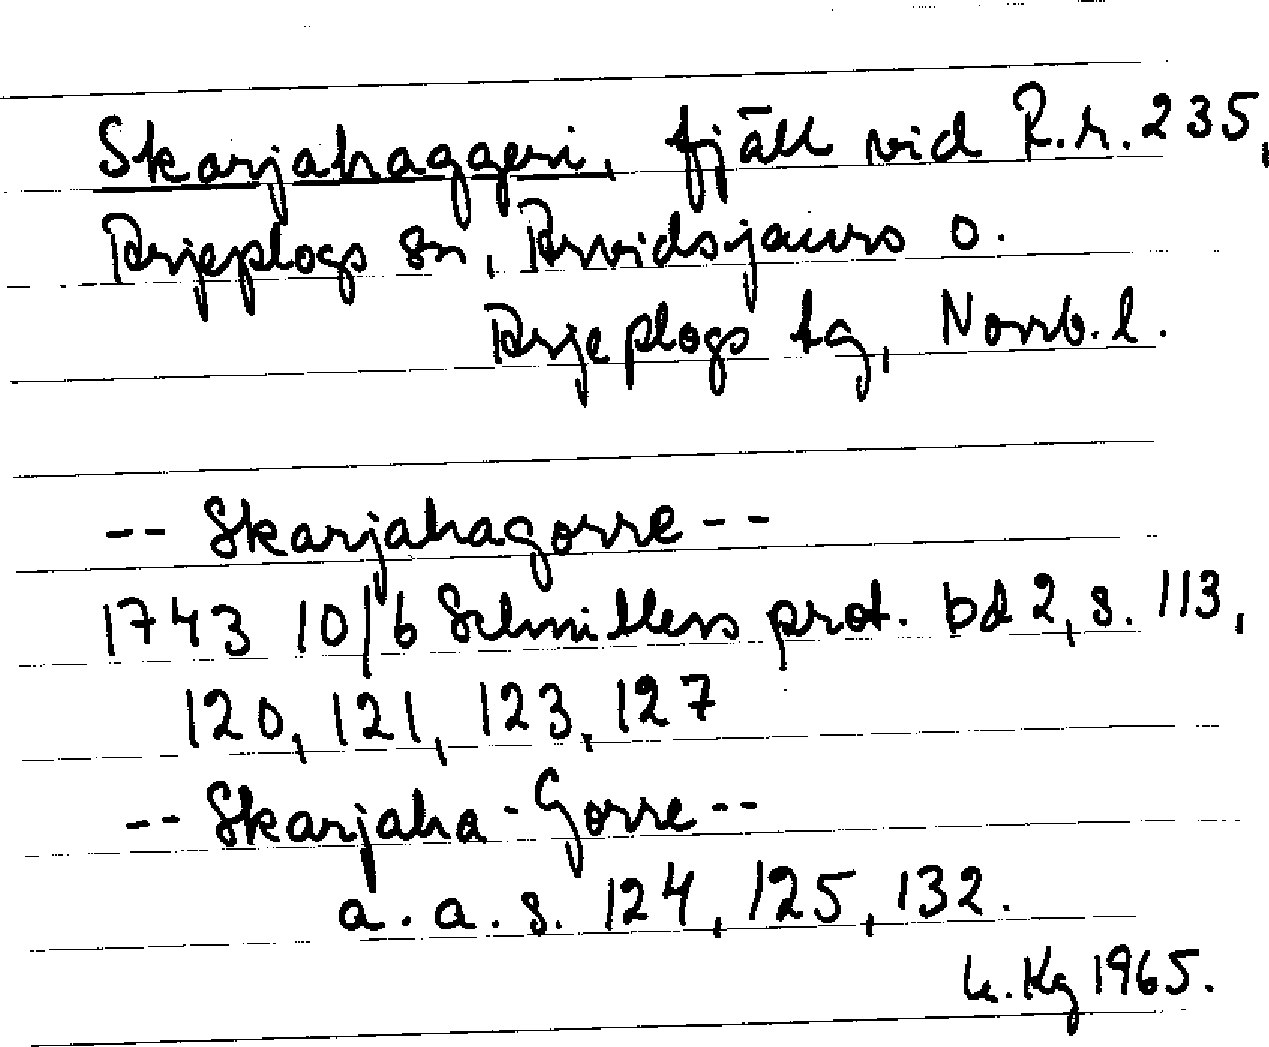 Skarjahaggeri, fjäll vid R.r. 235,
Arjeplogs sn, Arvidsjaurs o.
Arjeplogs tg, Norrb. l.
-- Skarjahagorre --
1743 10/6 Schnitlers prot. bd 2, s. 113,
120, 121, 123, 127
-- Skarjaha-Gorre --
a. a. s. 124, 125, 132.
Kg 1965.